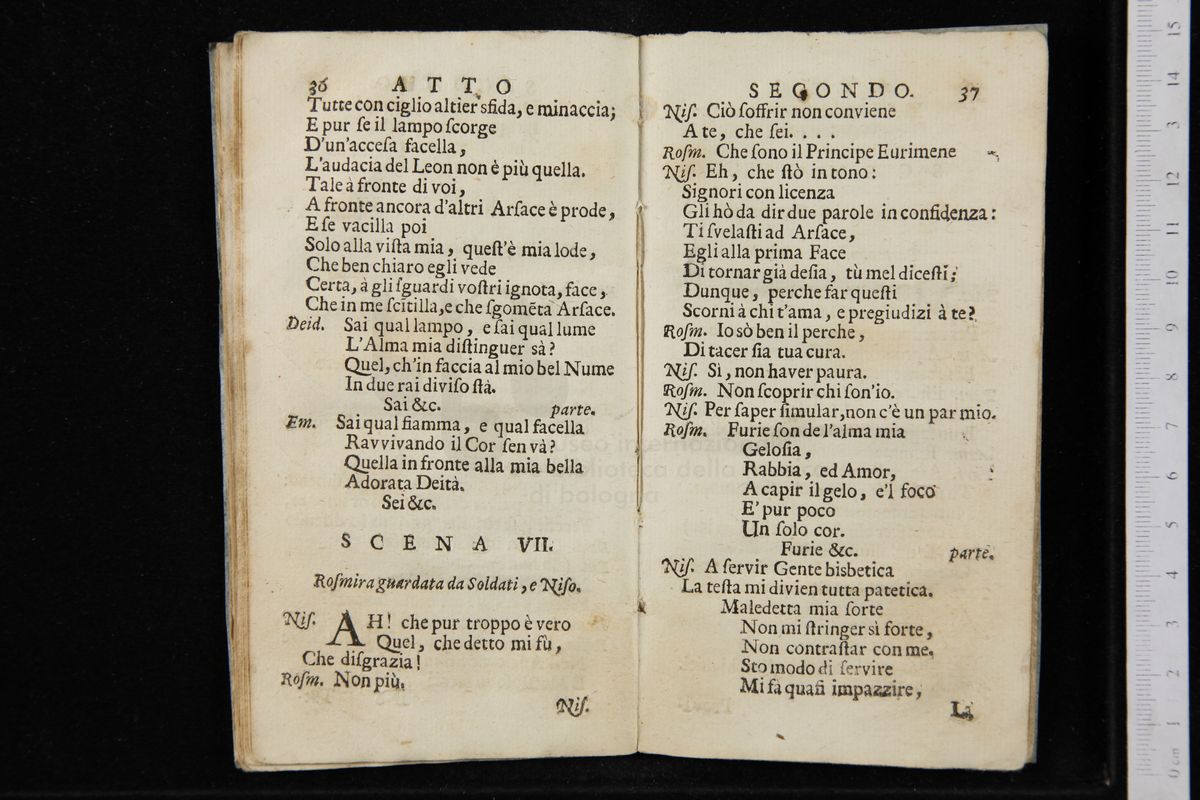 36 ATTO
Tutte con ciglio altier sfida, e minaccia;
E pur ſe il lampo ſcorge
D'un'acceſa facella,
L'audacia del Leon non è più quella.
Tale à fronte di voi,
A fronte ancora d'altri Arſace è prode,
E ſe vacilla poi
Solo alla viſta mia, queſt'è mia lode,
Che ben chiaro egli vede
Certa, à gli ſguardi voſtri ignota, face,
Che in me ſcĩtilla, e che ſgomẽta Arſace.
Deid. Sai qual lampo, e ſai qual lume
L'Alma mia diſtinguer sà?
Quel, ch'in faccia al mio bel Nume
In due rai diviſo ſtà.
Sai &c. parte.
Em. Sai qual fiamma, e qual facella
Ravvivando il Cor ſen và?
Quella in fronte alla mia bella
Adorata Deità.
Sei &c.
SCENA VII.
Roſmira guardata da Soldati, e Niſo.
Niſ. AH! che pur troppo è vero
Quel, che detto mi fù,
Che diſgrazia!
Roſm. Non più.
Niſ.
SECONDO. 37
Niſ. Ciò ſoffrir non conviene
A te, che ſei. . . .
Roſm. Che ſono il Principe Eurimene
Niſ. Eh, che ſtò in tono:
Signori con licenza
Gli hò da dir due parole in confidenza:
Ti ſvelaſti ad Arſace,
Egli alla prima Face
Di tornar già deſia, tù mel diceſti;
Dunque, perche far queſti
Scorni à chi t'ama, e pregiudizi à te?
Roſm. Io sò ben il perche,
Di tacer ſia tua cura.
Niſ. Sì, non haver paura.
Roſm. Non ſcoprir chi ſon'io.
Niſ. Per ſaper ſimular, non c'è un par mio.
Roſm. Furie ſon de l'alma mia
Geloſia,
Rabbia, ed Amor,
A capir il gelo, e'l foco
E' pur poco
Un ſolo cor.
Furie &c. parte.
Niſ. A ſervir Gente bisbetica
La teſta mi divien tutta patetica.
Maledetta mia ſorte
Non mi ſtringer sì forte,
Non contraſtar con me.
Sto modo di ſervire
Mi fà quaſi impazzire,
La